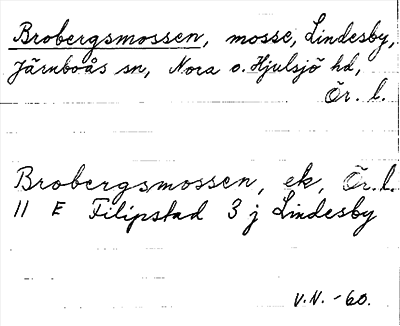 Brobergsmossen, mosse, Lindesby,
Järnboås sn, Nora o. Hjulsjö hd,
Ör. l.
Brobergsmossen, ek, Ör. l.
11 E Filipstad 3 j Lindesby
V.N. -60.